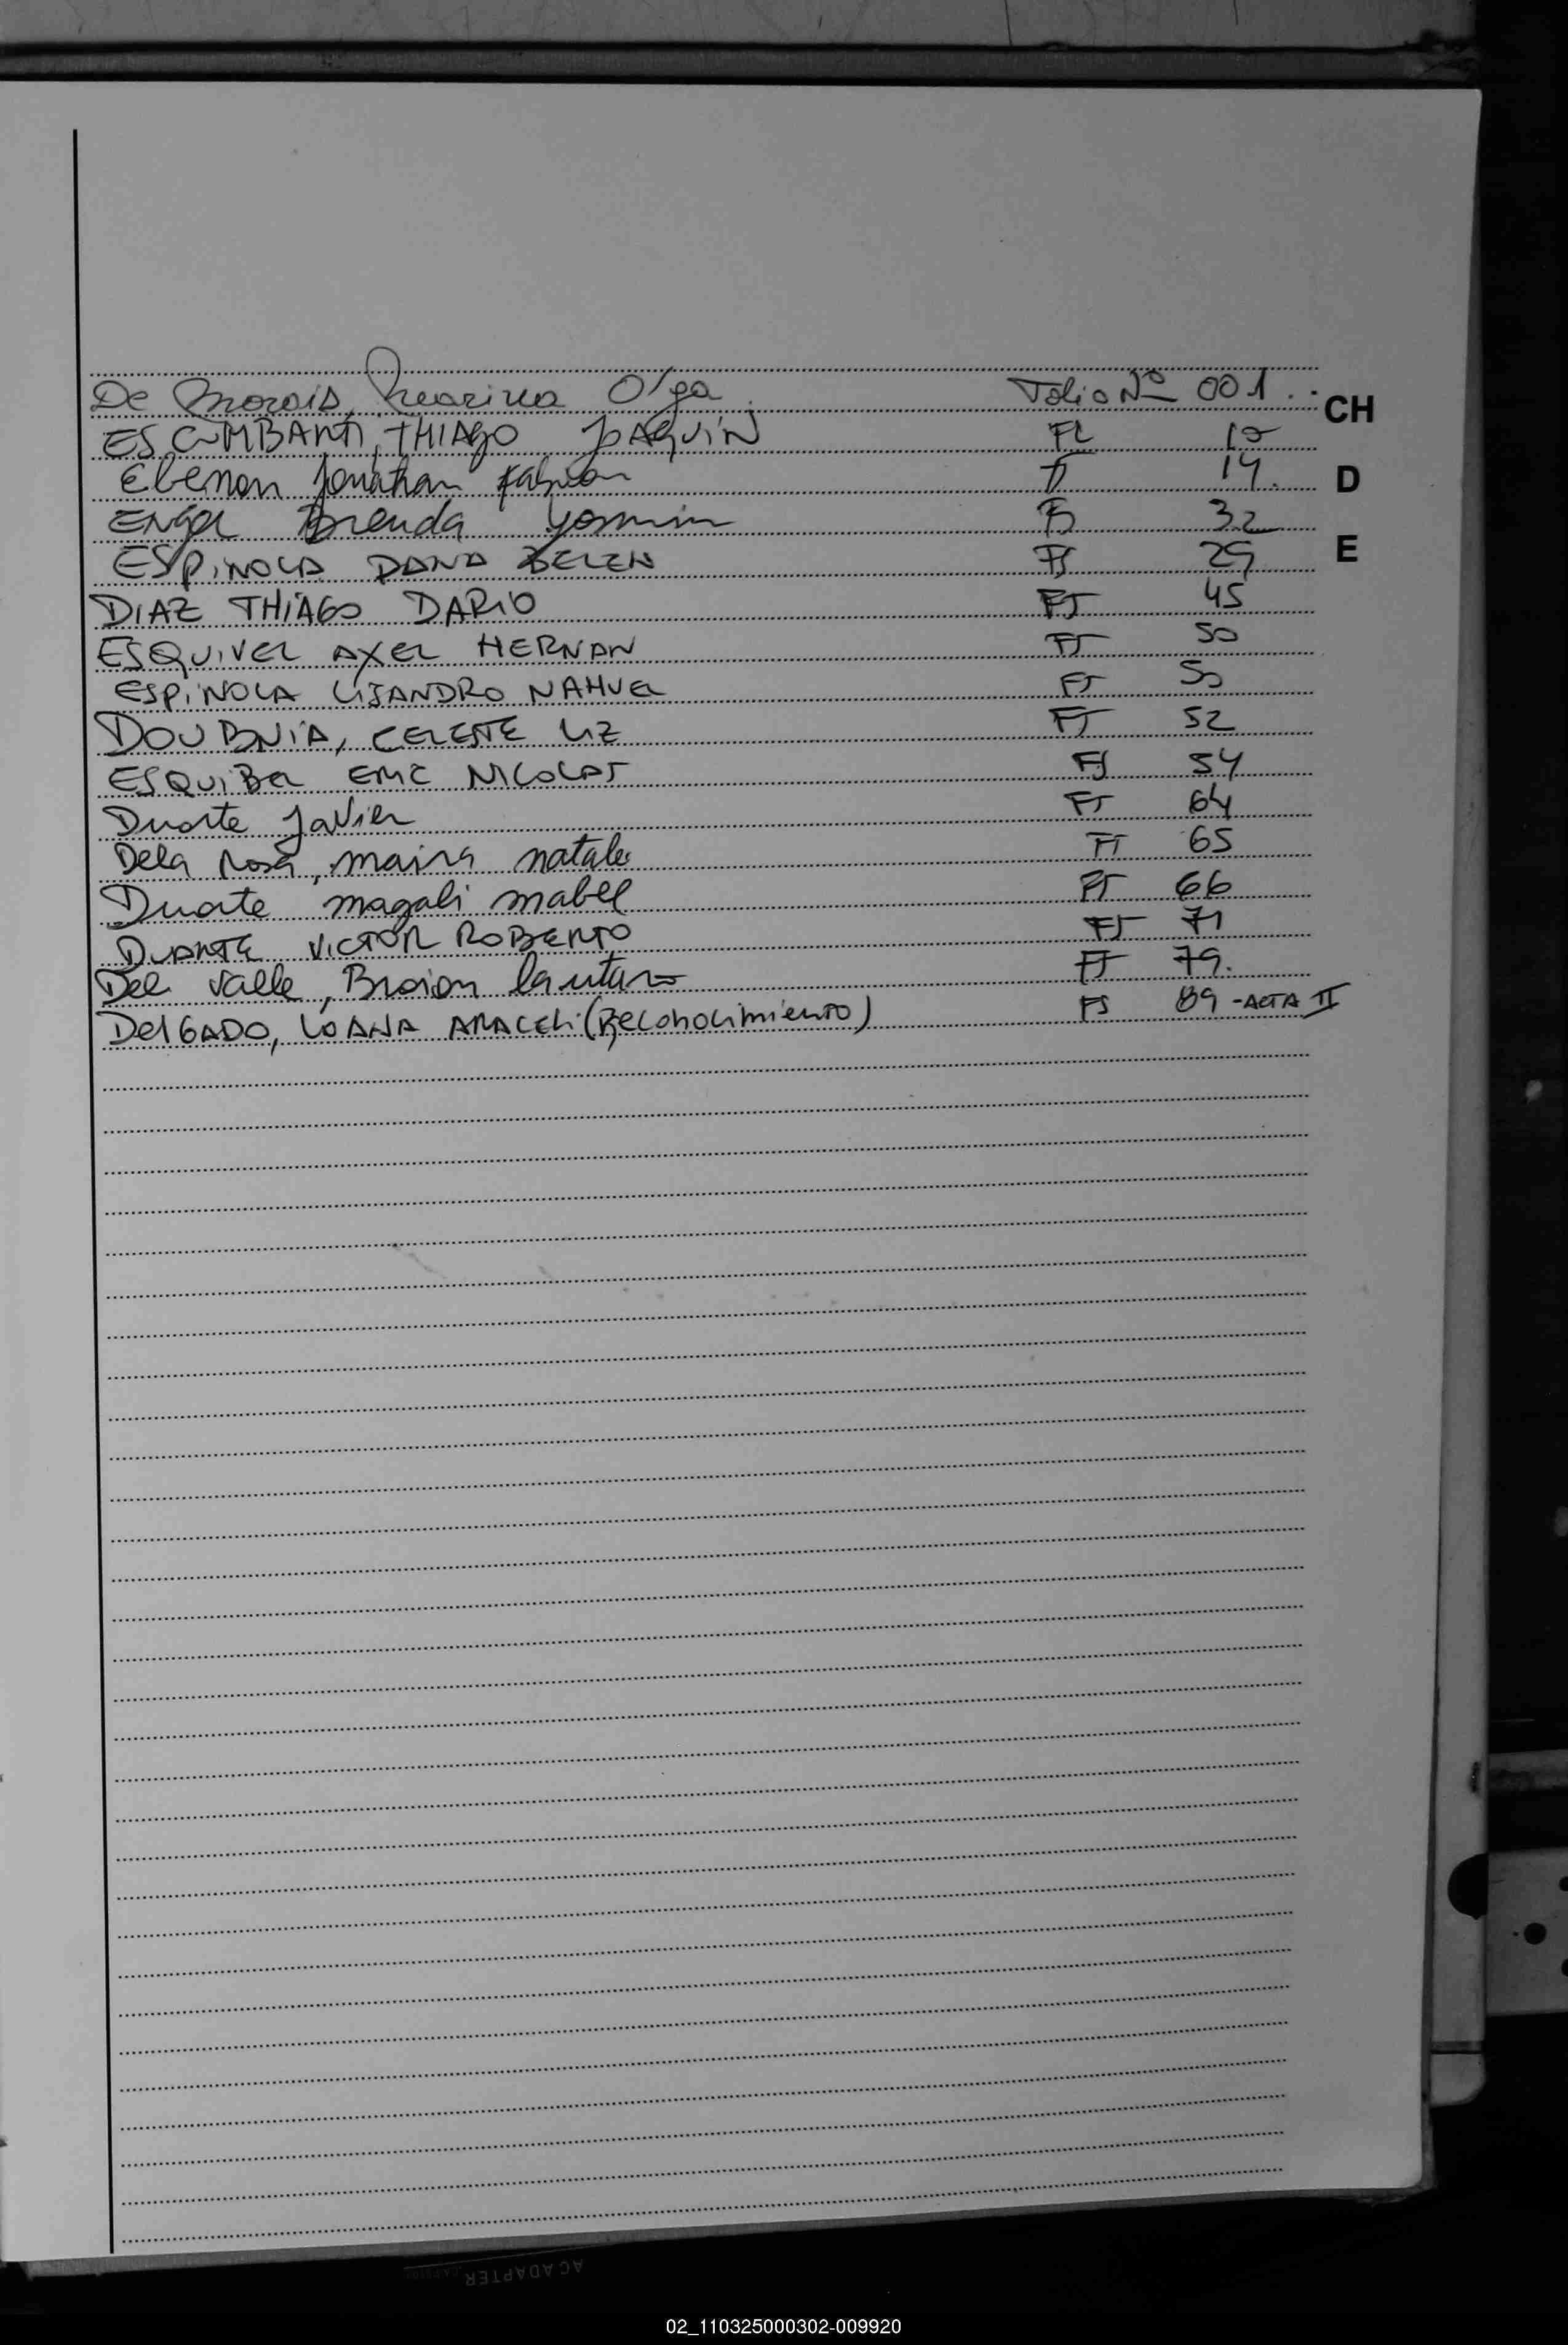 De Morais, Marina Olga. Folio Nº 001. CH
ESCUMBARTI, THIAGO JOAQUIN FL 12
Ebenon Jonathan Fabian F 14. D
Engel Brenda Yasmin FS 32
ESPINOLA DANA BELEN FS 29 E
DIAZ THIAGO DARIO FS 45
ESQUIVEL AXEL HERNAN FS 50
ESPINOLA LISANDRO NAHUEL FS 50
DOUBNIA, CELESTE LIZ FS 52
ESQUIBEL ERIC NICOLAS FS 54
Duarte Javier FS 64
Dela Rosa, maira natali FS 65
Duarte magali mabel FS 66
DUARTE VICTOR ROBERTO FS 71
Del Valle, Braian lautaro FS 79.
DelGADO, LOANA ARACELI (Reconocimiento) FS 89 - ACTA II
AC ADAPTER
02_110325000302-009920